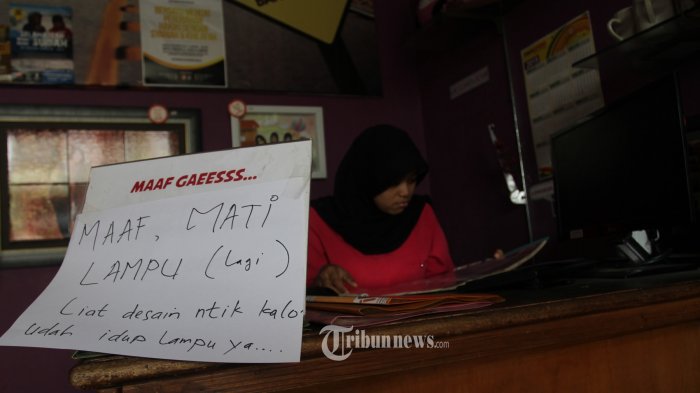 MAAF GAEESSS...
MAAF, MATI
LAMPU (Lagi)
Liat desain ntik kalo
Udah idup Lampu ya....
Tribunnews.com